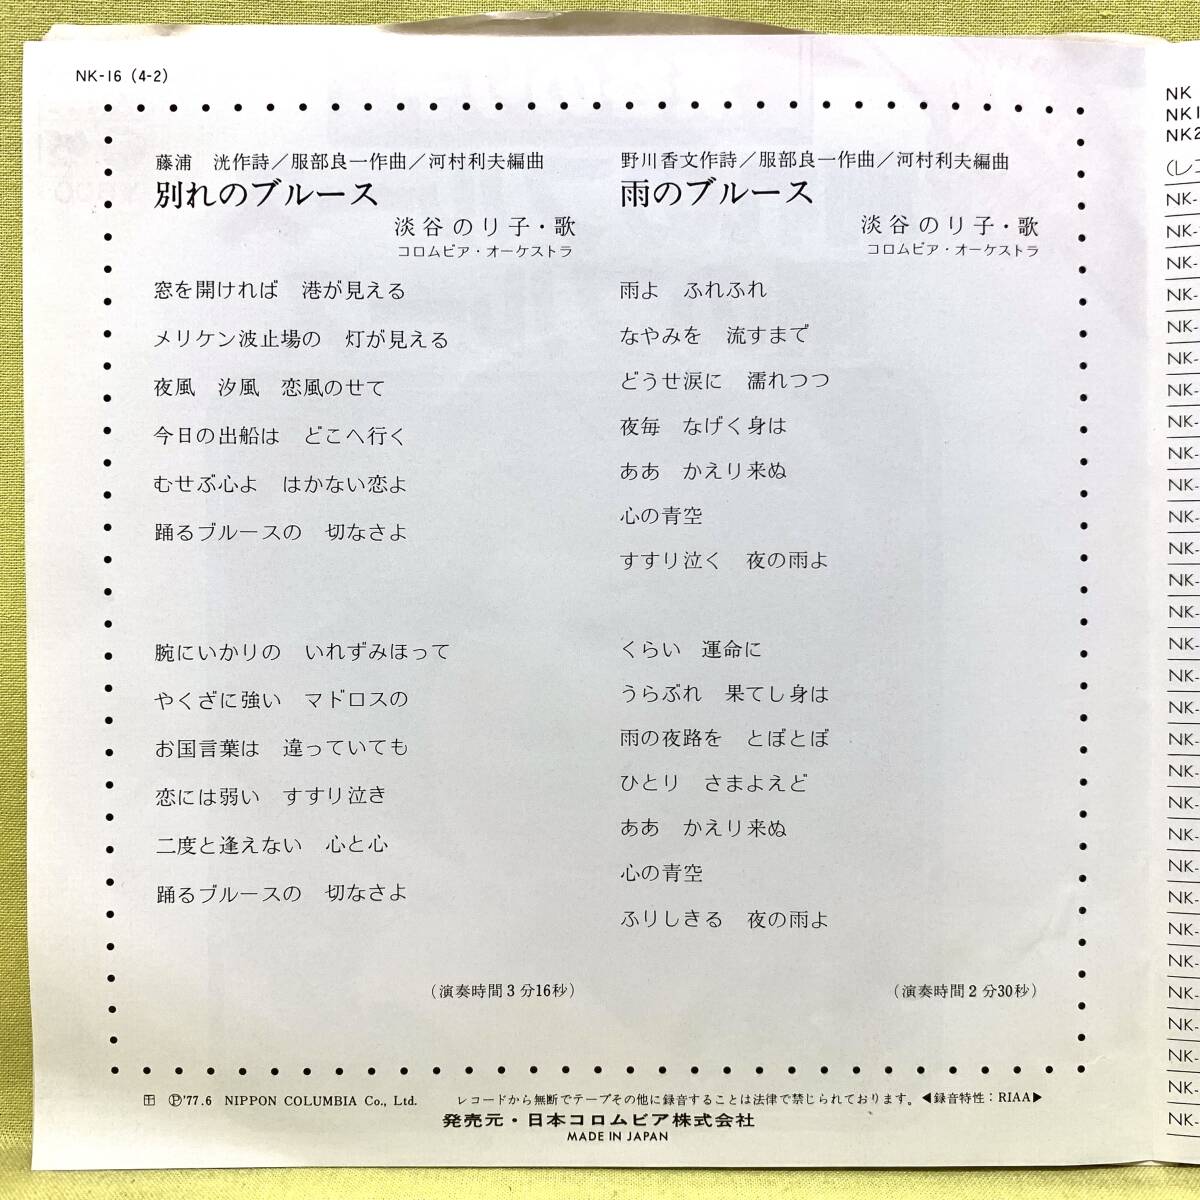 NK-16 (4-2)
藤浦　洸作詩／服部良一作曲／河村利夫編曲
別れのブルース
淡谷のり子・歌
コロムビア・オーケストラ
窓を開ければ　港が見える
メリケン波止場の　灯が見える
夜風　汐風　恋風のせて
今日の出船は　どこへ行く
むせぶ心よ　はかない恋よ
踊るブルースの　切なさよ
腕にいかりの　いれずみほって
やくざに強い　マドロスの
お国言葉は　違っていても
恋には弱い　すすり泣き
二度と逢えない　心と心
踊るブルースの　切なさよ
(演奏時間3分16秒)
野川香文作詩／服部良一作曲／河村利夫編曲
雨のブルース
淡谷のり子・歌
コロムビア・オーケストラ
雨よ　ふれふれ
なやみを　流すまで
どうせ涙に　濡れつつ
夜毎　なげく身は
ああ　かえり来ぬ
心の青空
すすり泣く　夜の雨よ
くらい　運命に
うらぶれ　果てし身は
雨の夜路を　とぼとぼ
ひとり　さまよえど
ああ　かえり来ぬ
心の青空
ふりしきる　夜の雨よ
(演奏時間2分30秒)
Ⓟ'77.6 NIPPON COLUMBIA Co., Ltd.　レコードから無断でテープその他に録音することは法律で禁じられております。◀録音特性：RIAA▶
発売元・日本コロムビア株式会社
MADE IN JAPAN
NK
NK1
NK2
(レコ
NK-
NK-
NK-
NK-
NK-
NK-
NK-
NK-
NK-
NK-
NK-
NK-
NK-
NK-
NK-
NK-
NK-
NK-
NK-
NK-
NK-
NK-
NK-
NK-
NK-
NK-
NK-
NK-
NK-
NK-